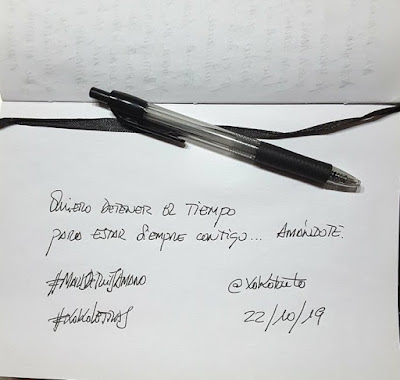 Quiero detener el tiempo
para estar siempre contigo... Amándote.
@xokoletto
#xokoletras
22/10/19